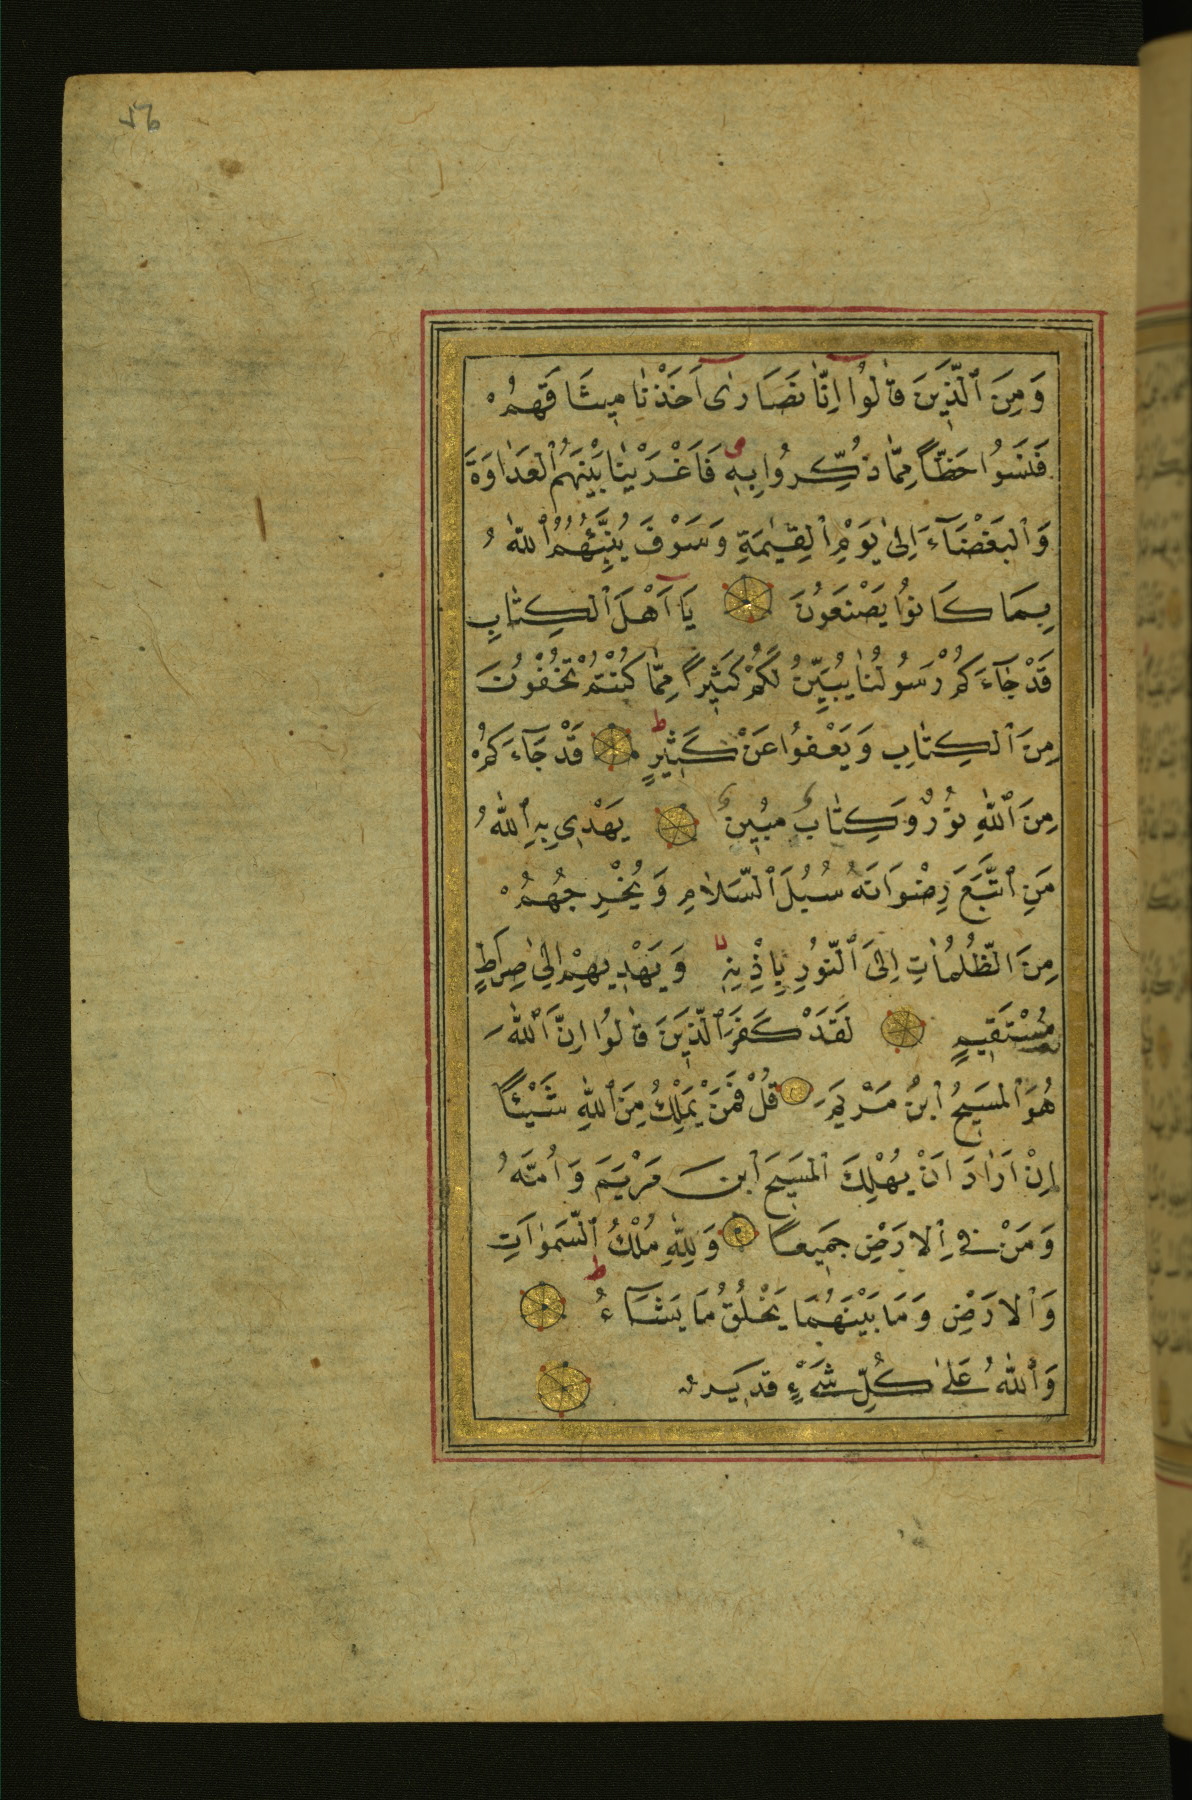 وَمِنَ ٱلَّذِينَ قَالُوا اِنَّا نَصَارٰى اَخَذْنَا مِيثَاقَهُمْ
فَنَسُوا حَظًّا مِمَّا ذُكِّرُوا بِهٖ فَاَغْرَيْنَا بَيْنَهُمُ ٱلْعَدَاوَةَ
وَٱلْبَغْضَآءَ اِلٰى يَوْمِ ٱلْقِيٰمَةِ وَسَوْفَ يُنَبِّئُهُمُ ٱللّٰهُ
بِمَا كَانُوا يَصْنَعُونَ يَا اَهْلَ ٱلْكِتَابِ
قَدْ جَآءَكُمْ رَسُولُنَا يُبَيِّنُ لَكُمْ كَثِيرًا مِمَّا كُنْتُمْ تُخْفُونَ
مِنَ ٱلْكِتَابِ وَيَعْفُوا عَنْ كَثِيرٍ قَدْ جَآءَكُمْ
مِنَ ٱللّٰهِ نُورٌ وَكِتَابٌ مُبِينٌ يَهْدِى بِهِ ٱللّٰهُ
مَنِ ٱتَّبَعَ رِضْوَانَهُ سُبُلَ ٱلسَّلَامِ وَيُخْرِجُهُمْ
مِنَ ٱلظُّلُمَاتِ اِلَى ٱلنُّورِ بِاِذْنِهٖ وَيَهْدِيهِمْ اِلٰى صِرَاطٍ
مُسْتَقِيمٍ لَقَدْ كَفَرَ ٱلَّذِينَ قَالُوا اِنَّ ٱللّٰهَ
هُوَ ٱلْمَسِيحُ ٱبْنُ مَرْيَمَ قُلْ فَمَنْ يَمْلِكُ مِنَ ٱللّٰهِ شَيْئًا
اِنْ اَرَادَ اَنْ يُهْلِكَ ٱلْمَسِيحَ ٱبْنَ مَرْيَمَ وَاُمَّهُ
وَمَنْ فِى ٱلْاَرْضِ جَمِيعًا وَلِلّٰهِ مُلْكُ ٱلسَّمٰوَاتِ
وَٱلْاَرْضِ وَمَا بَيْنَهُمَا يَخْلُقُ مَا يَشَآءُ
وَٱللّٰهُ عَلٰى كُلِّ شَىْءٍ قَدِيرٌ